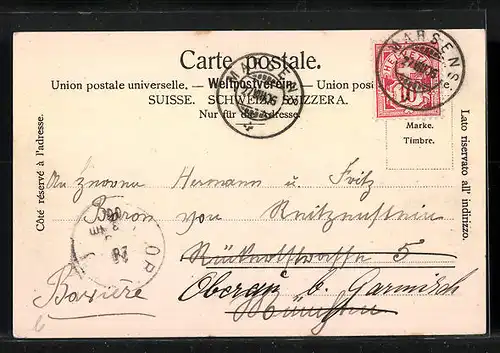 Carte postale.
Union postale universelle. — Weltpostverein. — Union postale
SUISSE. SCHWEIZ. SVIZZERA.
Nur für die Adresse.
Côté réservé à l'adresse.
Lato riservato all' indirizzo.
Marke.
Timbre.
HELVETIA
10
MARSENS
MARSENS
Hermann u. Fritz
Baron von Reitzenstein
Rückertstrasse 5
Oberau b. Garmisch
München
Bavière